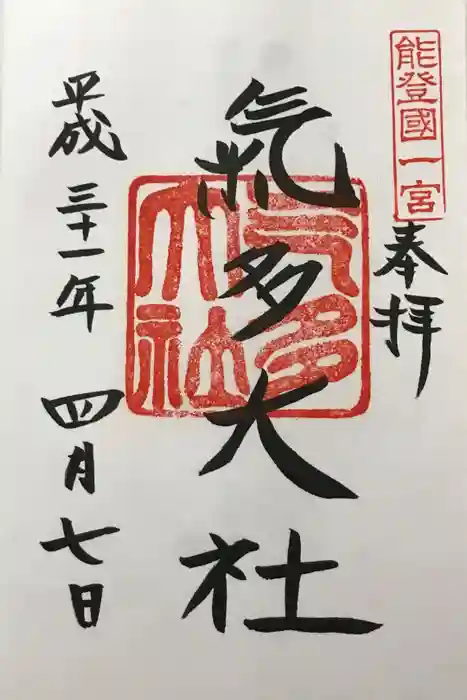 能登國一宮
奉拝
氣多大社
氣多大社
平成三十一年四月七日